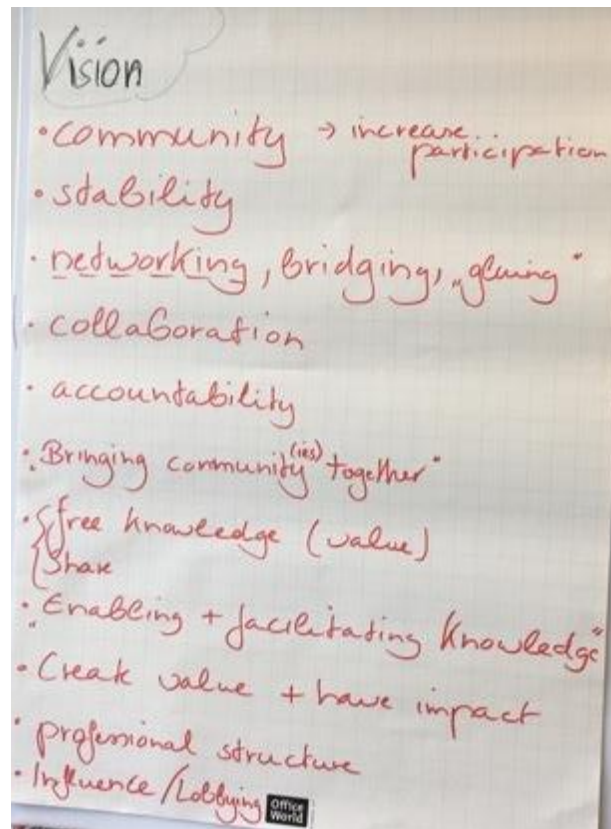 Vision
• community → increase participation
• stability
• networking, bridging, „gluing"
• collaboration
• accountability
• „Bringing community(ies) together"
• { free knowledge (value)
{ Share
• „Enabling + facilitating knowledge"
• Create value + have impact
• professional structure
• Influence / Lobbying
Office World